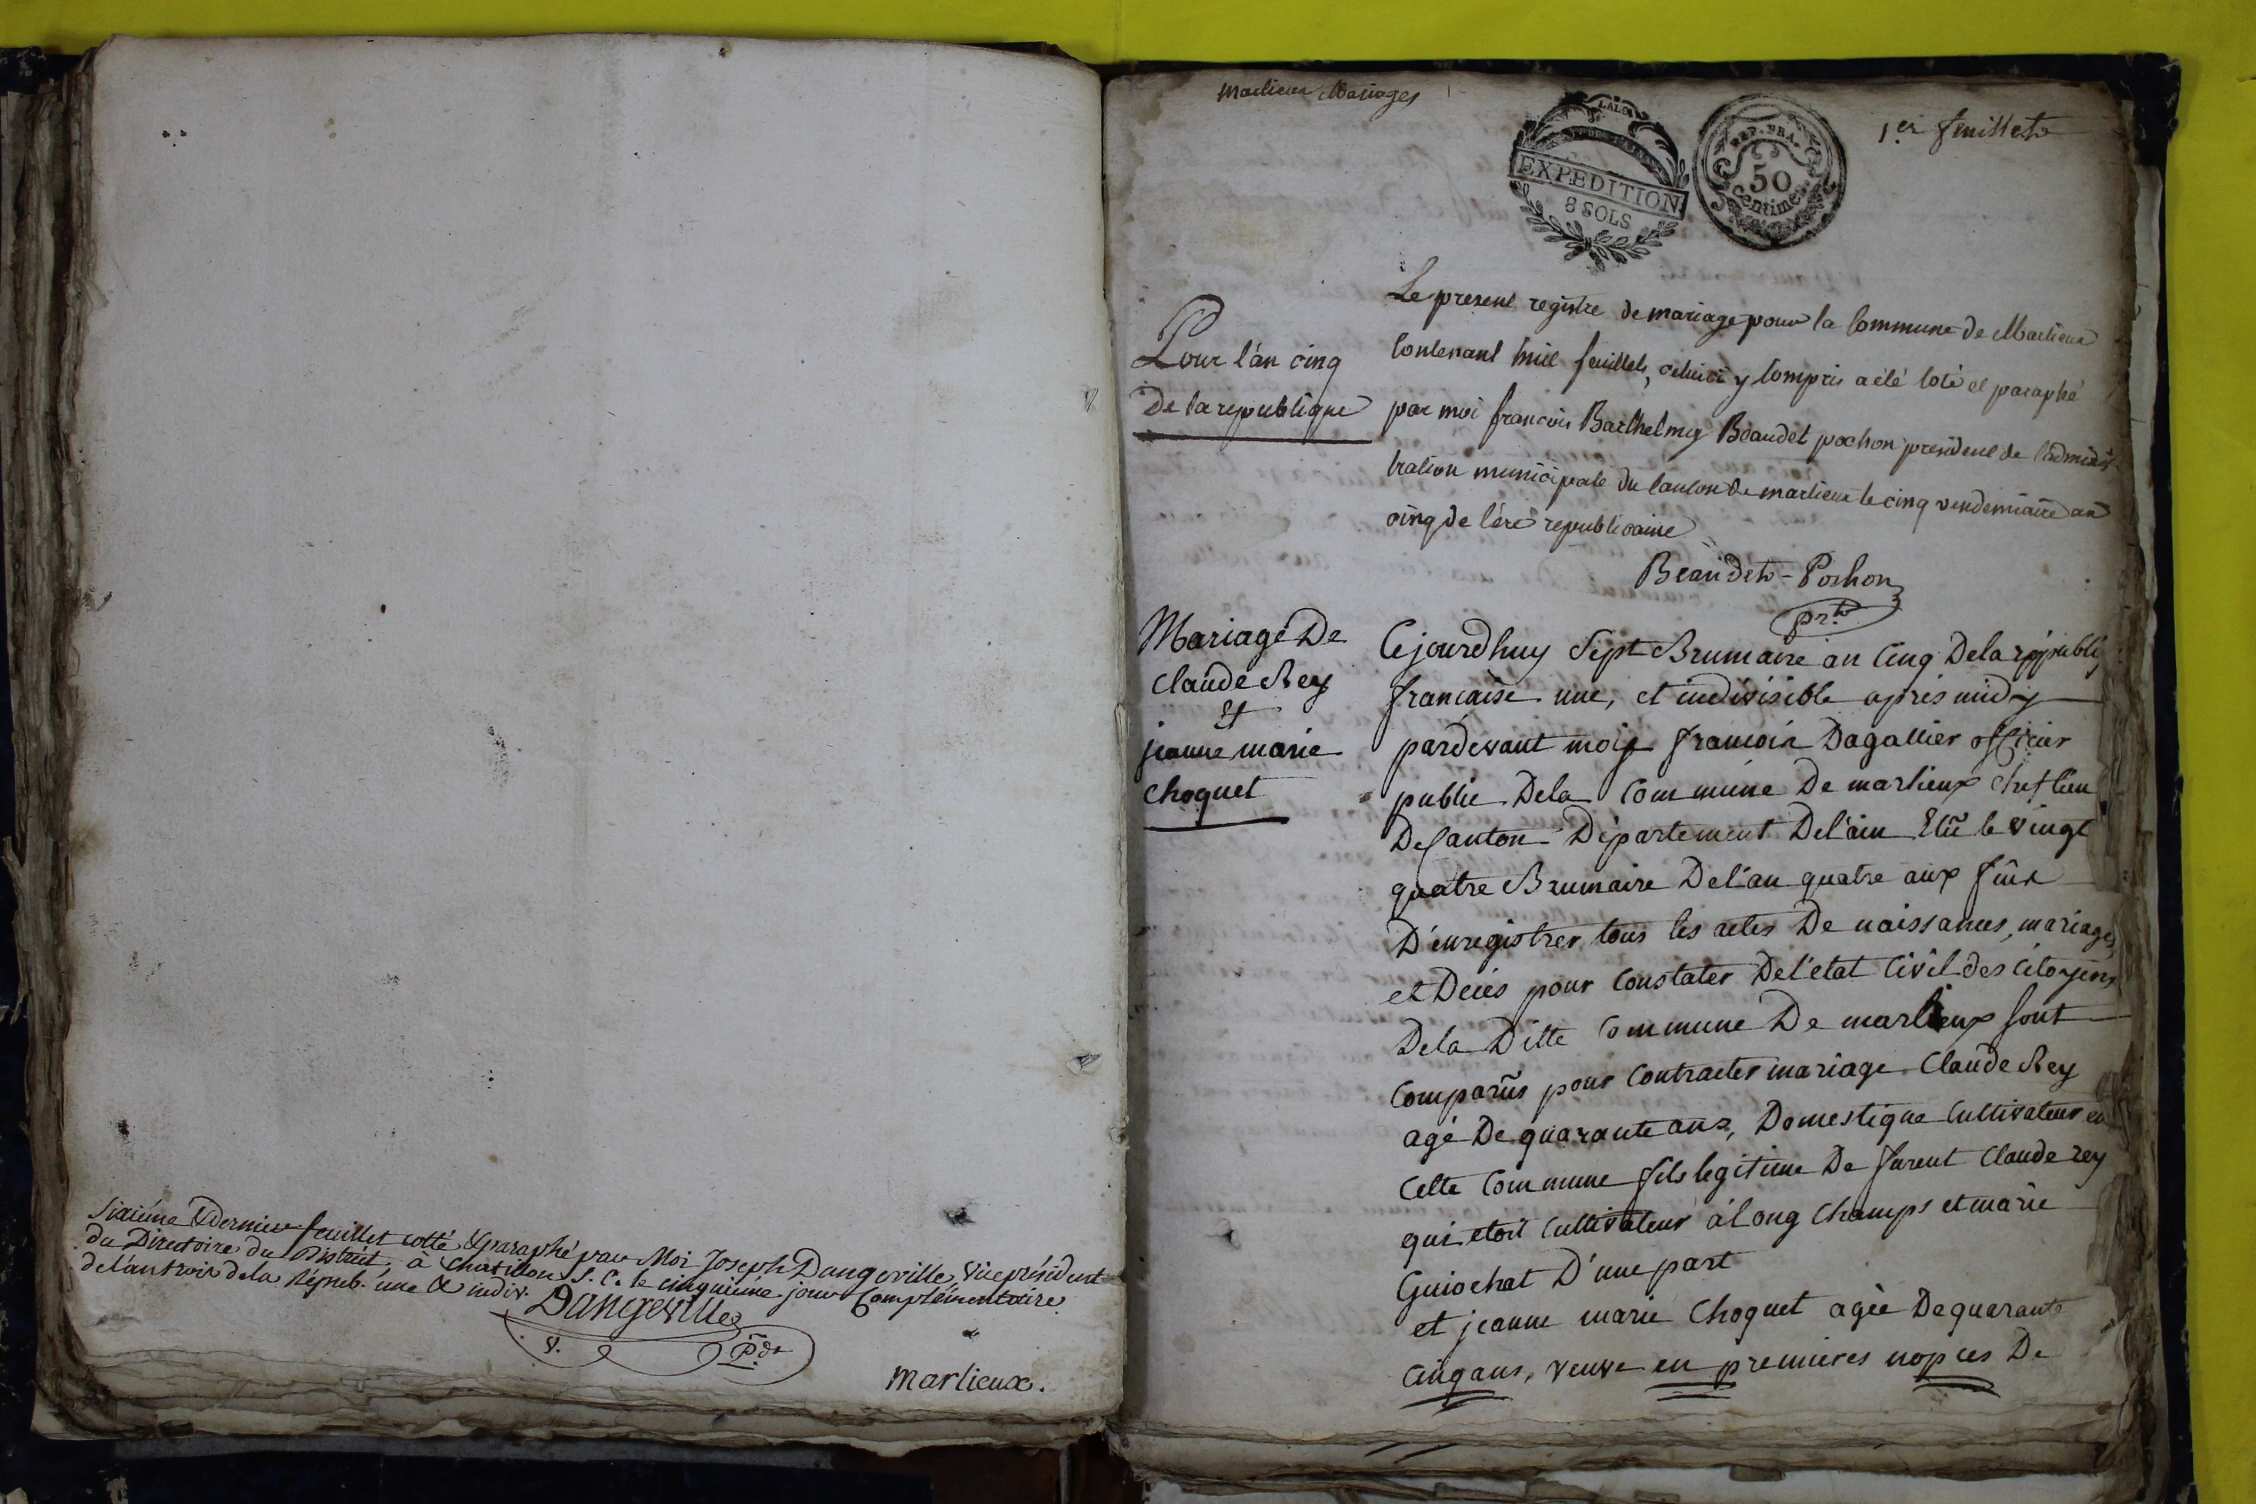 Sixiéme & dernier feuillet cotté & paraphé par Moi Joseph Dangeville, Vice président
du Directoire du District, à Chatillon S. C. le cinquiéme jour Complémentaire
de l'an trois de la Répub. une & indiv.
Dangeville
V. Pdt
Marlieux.
Marlieux Mariages
LALO
EXPEDITION
8 SOLS
REP. FRA.
50
Centimes.
1er feuillet
Le present registre de mariage pour la Commune de Marlieux
Contenant huit feuillets, celuici y Compris a été Coté et paraphé
par moi francois Barthelmy Beaudet pochon president de l'adminis
tration municipale du Canton de marlieux le cinq vendemiaire an
cinq de l'ére republicaine
Beaudet-Pochon
prt
Pour l'an cinq
de la republique
Mariage De
Claude Rey
Et
jeanne marie
Choquet
Cejourdhuy Sept Brumaire an Cinq Dela républiq
francaise une, et indivisible aprés midy
pardevant moy francois Dagallier officier
public Dela Commune De marlieux Chef lieu
De Canton Département Del'ain Elû le vingt
quatre Brumaire Del'an quatre aux fins
D'enregistrer tous les actes De naissances, mariages
et Decès pour Constater Del'etat Civil des Citoyens
Dela Ditte Commune De marlieux Sont
Comparûs pour Contracter mariage Claude Rey
agé De quarante ans, Domestique Cultivateur en
Cette Commune fils legitime De furent Claude rey
qui etoit Cultivateur à Long Champs et marie
Guiochat D'une part
et jeanne marie Choquet agée De quarante
Cinq ans, veuve en premieres nopces De